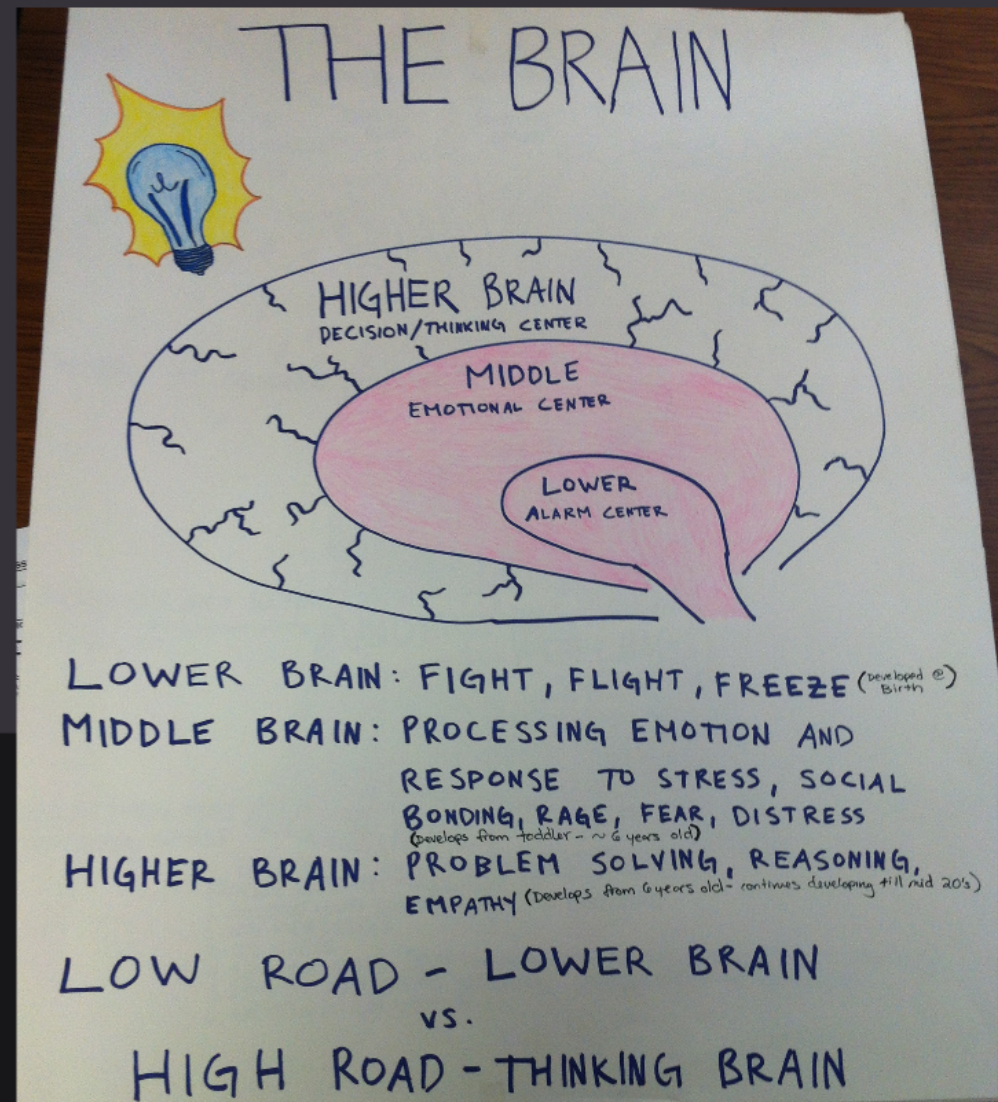 THE BRAIN
HIGHER BRAIN
DECISION/THINKING CENTER
MIDDLE
EMOTIONAL CENTER
LOWER
ALARM CENTER
LOWER BRAIN: FIGHT, FLIGHT, FREEZE (Developed @
Birth)
MIDDLE BRAIN: PROCESSING EMOTION AND
RESPONSE TO STRESS, SOCIAL
BONDING, RAGE, FEAR, DISTRESS
(Develops from toddler - ~ 6 years old)
HIGHER BRAIN: PROBLEM SOLVING, REASONING,
EMPATHY (Develops from 6 years old - continues developing till mid 20's)
LOW ROAD - LOWER BRAIN
VS.
HIGH ROAD - THINKING BRAIN